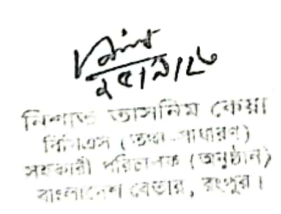 নিশাত তাসনিম কেয়া
বিসিএস (তথ্য-সাধারণ)
সহকারী পরিচালক (অনুষ্ঠান)
বাংলাদেশ বেতার, রংপুর।